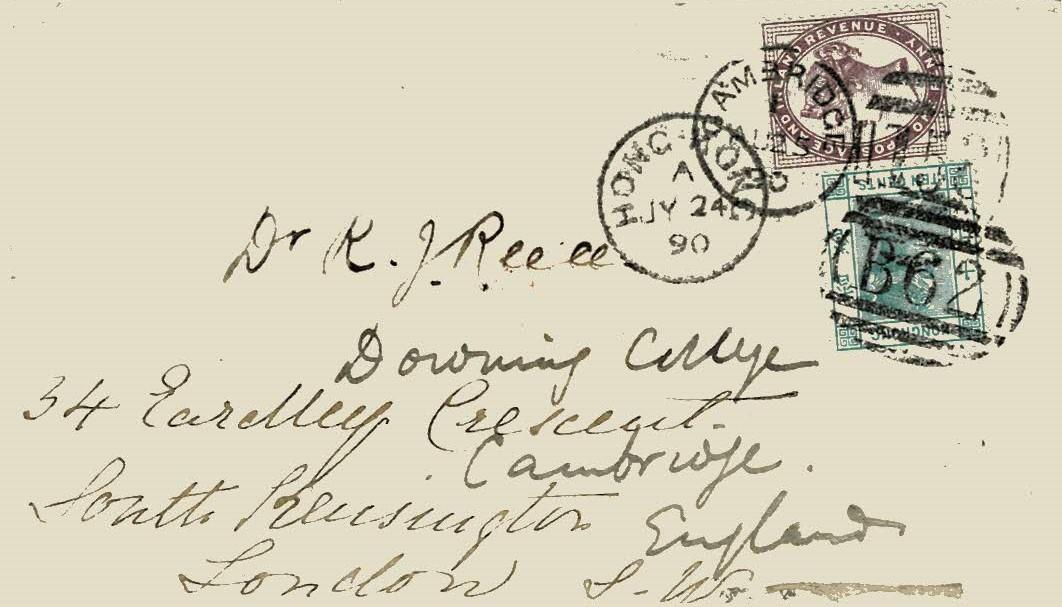 POSTAGE AND INLAND REVENUE
CAMBRIDGE
AU 25
90
HONG KONG
A
JY 24
90
TEN CENTS
HONG KONG
B62
Dr R. J. Reece
Downing College
34 Eardley Crescent.
Cambridge.
South Kensington
England
London S.W.